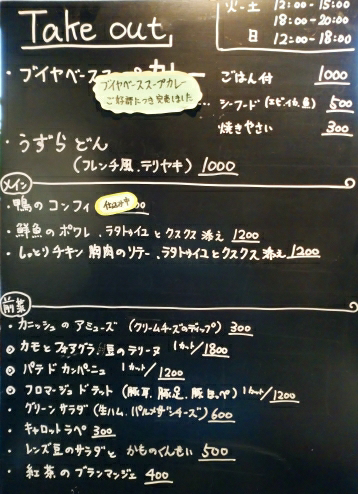 Take out
火-土 12:00-15:00
18:00-20:00
日 12:00-18:00
・ブイヤベーススープカレー ごはん付 1000
ブイヤベーススープカレー
ご好評につき完売しました
シーフード(エビ、イカ、魚) 500
焼きやさい 300
・うずらどん
(フレンチ風、テリヤキ) 1000
メイン
・鴨のコンフィ 仕込み中 00
・鮮魚のポワレ、ラタトゥイユとクスクス添え 1200
・しっとりチキン胸肉のソテー、ラタトゥイユとクスクス添え 1200
前菜
・カニッシュのアミューズ (クリームチーズのディップ) 300
カモとフォアグラ、豆のテリーヌ 1カット/1800
パテドカンパーニュ 1カット/1200
フロマージュドテット (豚耳、豚足、豚ほっぺ) 1カット/1200
・グリーンサラダ (生ハム、パルメザンチーズ) 600
・キャロットラペ 300
・レンズ豆のサラダと かものくんせい 500
・紅茶のブランマンジェ 400